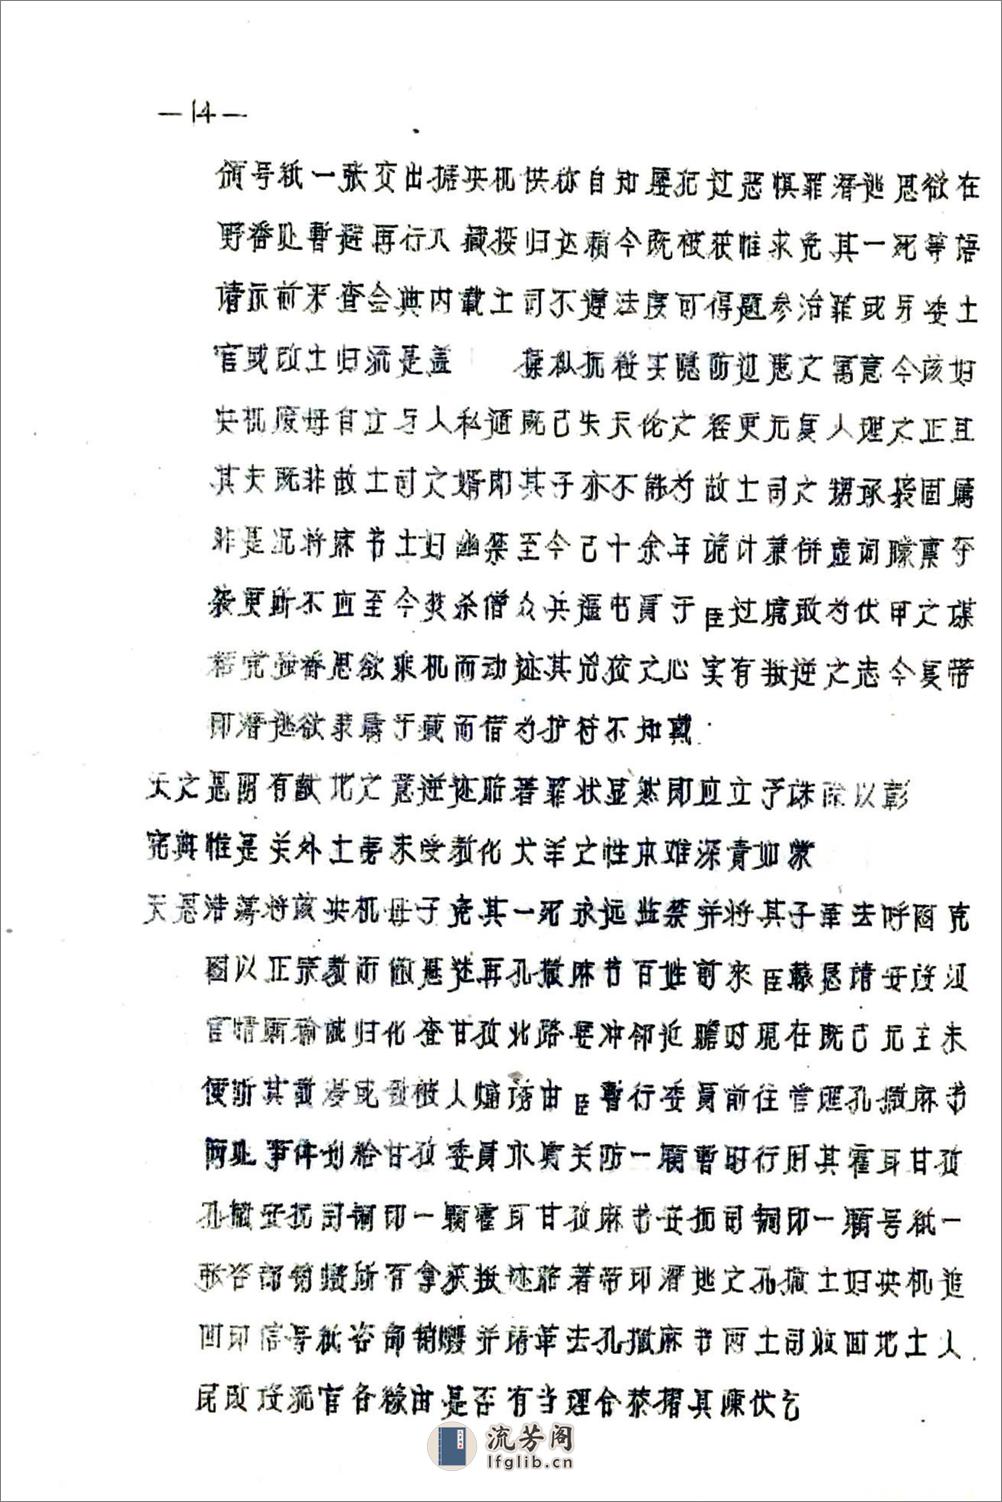 —14—
颁号纸一张交出据央机供称自知屡犯过恶惧罪潜逃思欲在
野番处暂避再行入藏投归达赖今既被获惟求免其一死等语
请示前来查会典内载土司不遵法度可得题参治罪或另委土
官或改土归流是盖 操纵抚绥实隐防边患之寓意今该妇
央机废母自立与人私通既已失天伦之 更无复人理之正且
其夫既非故土司之婿即其子亦不能为故土司之甥承袭固属
非是况将麻书土妇幽禁至今已十余年诡计兼併虚词朦禀夺
袭更所不应至今焚杀僧众兵逼屯员于臣过境敢为伏甲之谋
 党强番思欲乘机而动迹其凶狡之心实有叛逆之志今复带
印潜逃欲隶属于藏而借为护符不知戴
天之恩阴有献地之意逆迹昭著罪状显然即应立予诛除以彰
宪典惟是关外土蛮未受教化犬羊之性本难深责如蒙
天恩浩荡将该央机母子免其一死永远监禁并将其子革去呼图克
图以正宗教而儆愚迷再孔撒麻书百姓前来臣辕恳请安设汉
官情愿输诚归化查甘孜北路要冲邻近瞻对现在既已无主未
便听其散漫或致被人煽诱由臣暂行委员前往管理孔撒麻书
两处事件刊给甘孜委员木质关防一颗暂时行用其霍耳甘孜
孔撒安抚司铜印一颗霍耳甘孜麻书安抚司铜印一颗号纸一
张咨部销燬所有拿获叛迹昭著带印潜逃之孔撒土妇央机追
回印信号纸咨部销燬并请革去孔撒麻书两土司收回地土人
民改设流官各缘由是否有当理合恭摺具陈伏乞
流芳阁
lfglib.cn